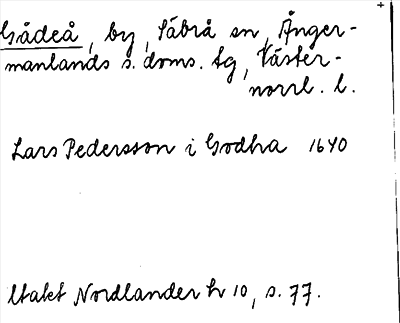 Gådeå, by, Säbrå sn, Ånger-
manlands s. doms. tg, Väster-
norrl. l.
Lars Pedersson i Godha 1640
Utakt Nordlander h 10, s. 77.